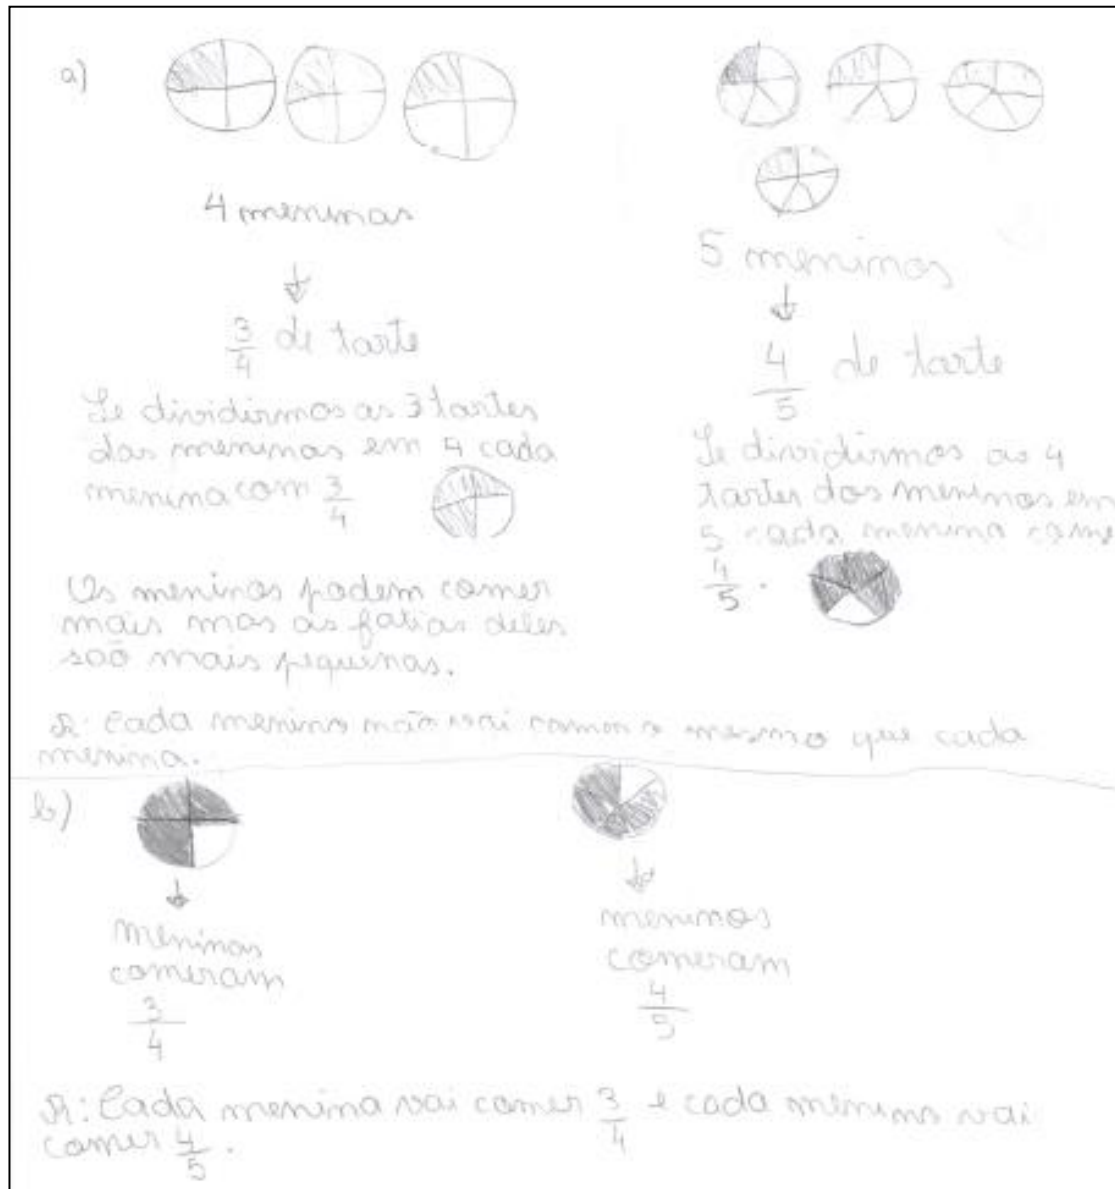 a)
4 meninas
3/4 de tarte
Se dividirmos as 3 tartes
das meninas em 4 cada
menina com 3/4
Os meninos podem comer
mais mas as fatias deles
saõ mais piquenas.
5 meninos
4/5 de tarte
Se dividirmos as 4
tartes dos meninos em
5 cada menino come
4/5.
R: Cada menino não vai comer o mesmo que cada
menina.
b)
meninas
comeram
3/4
meninos
comeram
4/5
R: Cada menina vai comer 3/4 e cada menino vai
comer 4/5.